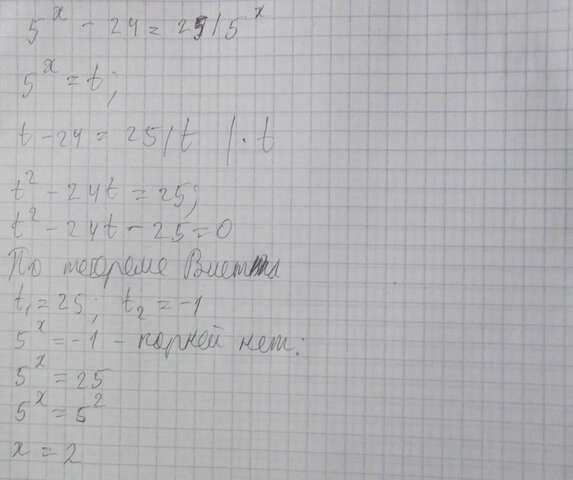 5^x - 24 = 25/5^x
5^x = t;
t - 24 = 25/t |· t
t² - 24t = 25;
t² - 24t - 25 = 0
По теореме Виета
t₁ = 25; t₂ = -1
5^x = -1 - корней нет.
5^x = 25
5^x = 5²
x = 2